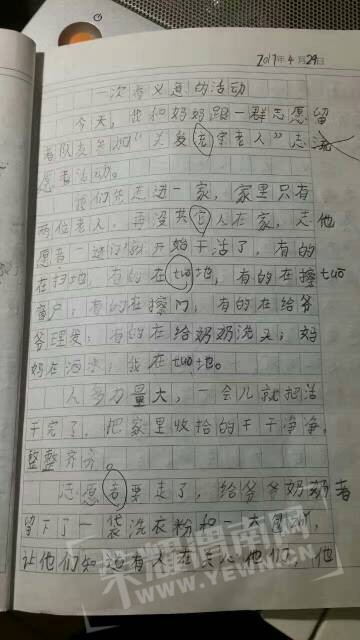 2017年4月29日
一次有义意的活动
今天,我和妈妈跟一群志愿留
者队去参加“关爱空巢老人”志流
愿者活动。
我们先走进一家,家里只有
两位老人,再没其它人在家,志他
愿者一进门就开始干活了,有的
在扫地,有的在tuō地,有的在擦tuō
窗户,有的在擦门,有的在给爷
爷理发,有的在给奶奶洗头,妈
妈在洒水,我在tuō地。
人多力量大,一会儿就把活
干完了,把家里收拾的干干净净,
整整齐齐。
志愿者要走了,给爷爷奶奶者
留下了一袋洗衣粉和一
让他们知道有人在关心他们,他
果洲调席网
WWW.YEWN.CN